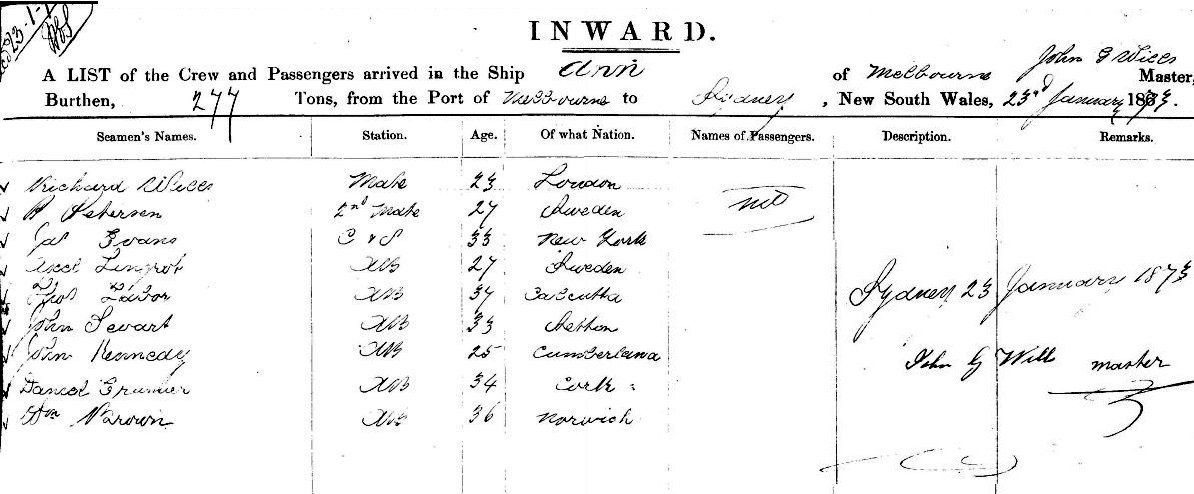 23-1-
INWARD.
A LIST of the Crew and Passengers arrived in the Ship Ann of Melbourne John G Wills Master,
Burthen, 277 Tons, from the Port of Melbourne to Sydney, New South Wales, 23rd January 1873.
Seamen's Names. Station. Age. Of what Nation. Names of Passengers. Description. Remarks.
Richard Wills Mate 23 London nil
P Petersen 2nd Mate 27 Sweden
Jas Evans C & S 33 New York
Axel AB 27 Sweden
Thos AB 37 Calcutta Sydney 23 January 1873
John Sewart AB 33
John Kennedy AB 25 Cumberland John G Wills master
Daniel AB 34 Cork
Wm Brown AB 36 Norwich